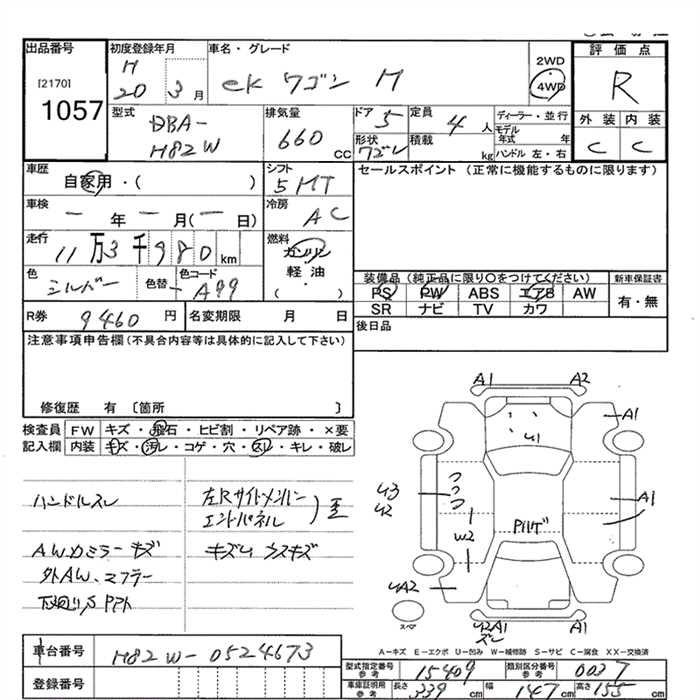 出品番号
[2170]
1057
初度登録年月
H
20 3月
車名・グレード
eK ワゴン M
2WD
4WD
評価点
R
型式
DBA-
H82W
排気量
660
CC
ドア
5
定員
4人
形状
ワゴン
積載
kg
ディーラー・並行
モデル年式 年
ハンドル 左・右
外装 内装
C C
車歴
自家用・( )
シフト
5MT
セールスポイント (正常に機能するものに限ります)
車検
一年 一月(一日)
冷房
AC
走行
11万3千980km
燃料
ガソリン
軽油
( ・ )
色
シルバー
色替
-
色コード
A99
装備品(純正品に限り〇をつけてください)
PS PW ABS エアB AW
SR ナビ TV カワ
新車保証書
有・無
R券 9460円
名変期限 月 日
後日品
注意事項申告欄(不具合内容等は具体的に記入して下さい)
修復歴 有 〔箇所 〕
検査員
記入欄
FW キズ・飛石・ヒビ割・リペア跡・×要
内装 キズ・汚レ・コゲ・穴・スレ・キレ・破レ
ハンドルスレ
左Rサイドメンバー
エンドパネル
AWカミラーキズ
キズU ウスキズ
外AW、マフラー
A1 A2
A1
U1
U3
U2
A1
W2
UA2
スペア
U2A1
A1
A-キズ E-エクボ U-凹み W-補修跡 S-サビ C-腐食 XX-交換済
車台番号
H82W-0524673
登録番号
型式指定番号
参考
15409
類別区分番号
参考
0037
車庫証明用
参考
長さ 339cm
幅 147cm
高さ 155cm